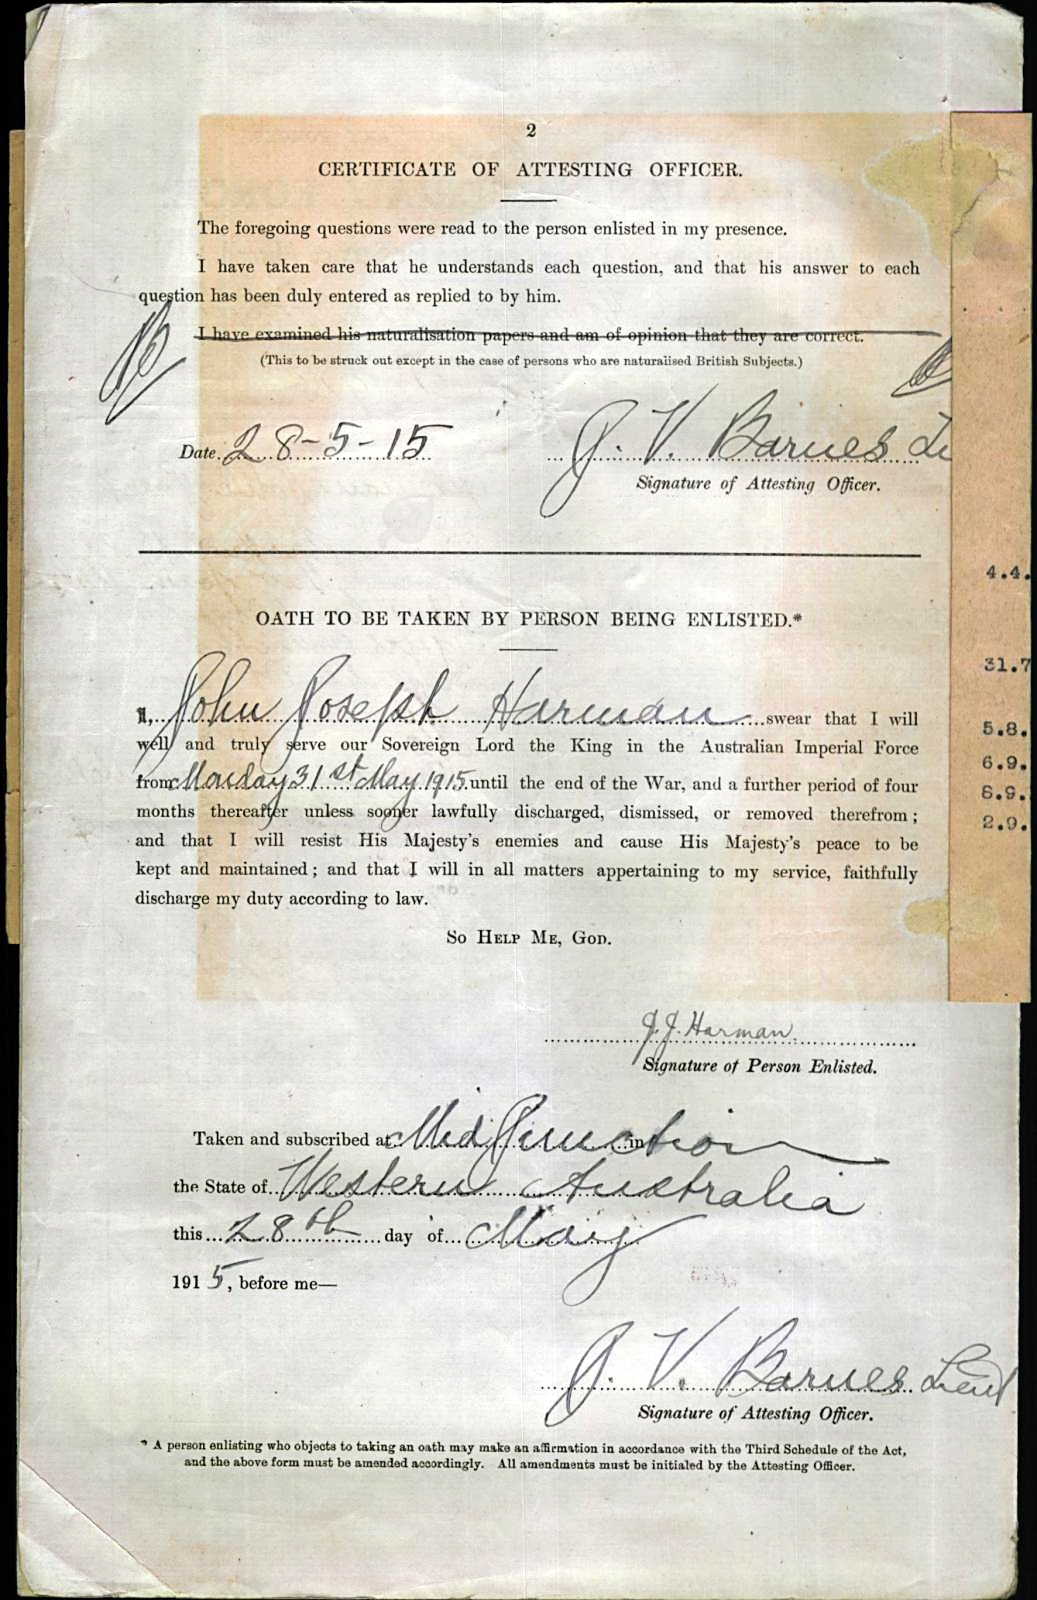 2
CERTIFICATE OF ATTESTING OFFICER.
The foregoing questions were read to the person enlisted in my presence.
I have taken care that he understands each question, and that his answer to each
question has been duly entered as replied to by him.
I have examined his naturalisation papers and am of opinion that they are correct.
(This to be struck out except in the case of persons who are naturalised British Subjects.)
Date 28-5-15 J. V. Barnes
Signature of Attesting Officer.
4.4.
OATH TO BE TAKEN BY PERSON BEING ENLISTED.*
31.7
I, John Joseph Harman swear that I will
5.8.
well and truly serve our Sovereign Lord the King in the Australian Imperial Force
6.9.
from Monday 31st May 1915 until the end of the War, and a further period of four
6.9.
months thereafter unless sooner lawfully discharged, dismissed, or removed therefrom;
2.9.
and that I will resist His Majesty's enemies and cause His Majesty's peace to be
kept and maintained; and that I will in all matters appertaining to my service, faithfully
discharge my duty according to law.
SO HELP ME, GOD.
J. J. Harman
Signature of Person Enlisted.
Taken and subscribed at Mid Junction in
the State of Western Australia
this 28th day of May
1915, before me—
J. V. Barnes Lieut
Signature of Attesting Officer.
* A person enlisting who objects to taking an oath may make an affirmation in accordance with the Third Schedule of the Act,
and the above form must be amended accordingly. All amendments must be initialed by the Attesting Officer.